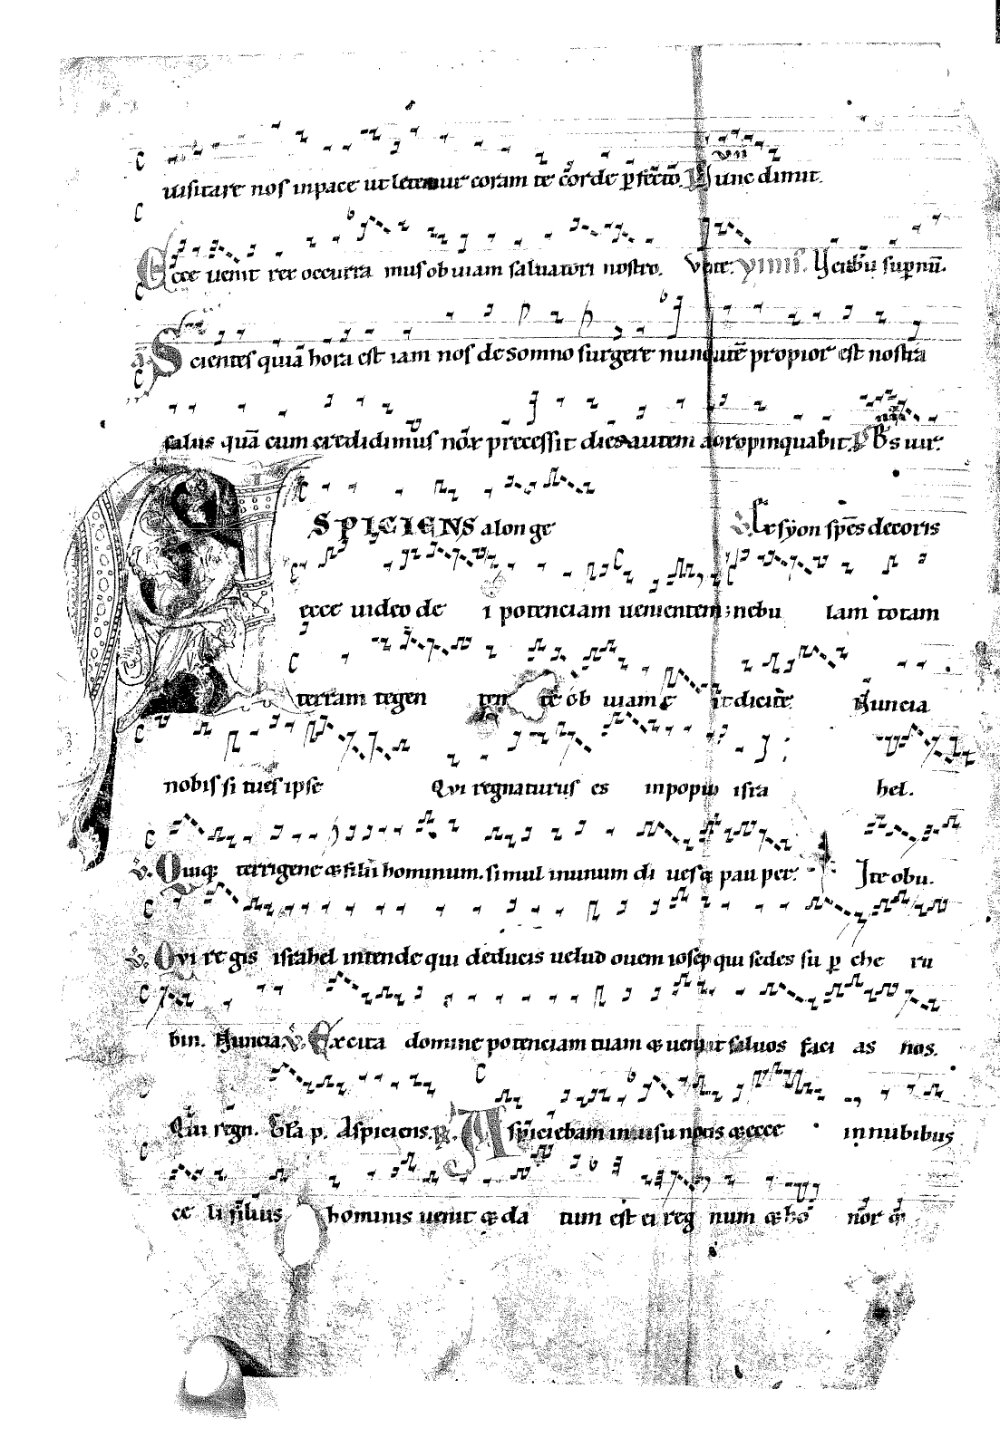 uisitare nos inpace ut letemur coram te corde perfecto. Nunc dimit.
Ecce uenit rex occurra mus obuiam saluatori nostro. Venite.
Scientes quia hora est iam nos de somno surgere nunc propior est nostra
salus quā cum credidimus nox precessit dies autem appropinquabit. Bs uir.
ASPICIENS alonge syon spēs decoris
ecce uideo de i potenciam uenientem; nebu lam totam
terram tegen tem te ob uiam dicite Nuncia
nobis si tu es ipse Qui regnaturus es inpopulo isra hel.
V. Quiq; terrigene & filii hominum. simul inunum di ues & pau per. Ite obu.
V. Qui regis israhel intende qui deducis uelud ouem iosep qui sedes su per che ru
bin. Nuncia. V. Excita domine potenciam tuam & ueni ut saluos faci as nos.
Qui regn. Gl'a p. Aspiciens. R. Aspiciebam in uisu noctis & ecce in nubibus
ce li filius hominis uenit & da tum est ei reg num & ho nor &